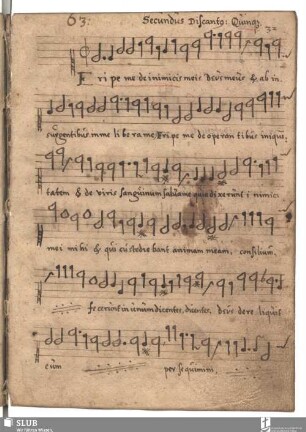 63: Secundus Discantus: Quinq;
32
Eripe me de inimicis meis deus meus & ab in
surgentibus in me libera me Eripe me de operantibus iniqui,
tatem & de viris sanguinum salva me quia dixerunt inimici
mei mihi & qui custodiebant animam meam, consilium,
fecerunt in unum dicentes, dicentes, deus dereliquit
eum persequimini,
SLUB
Wir führen Wissen.